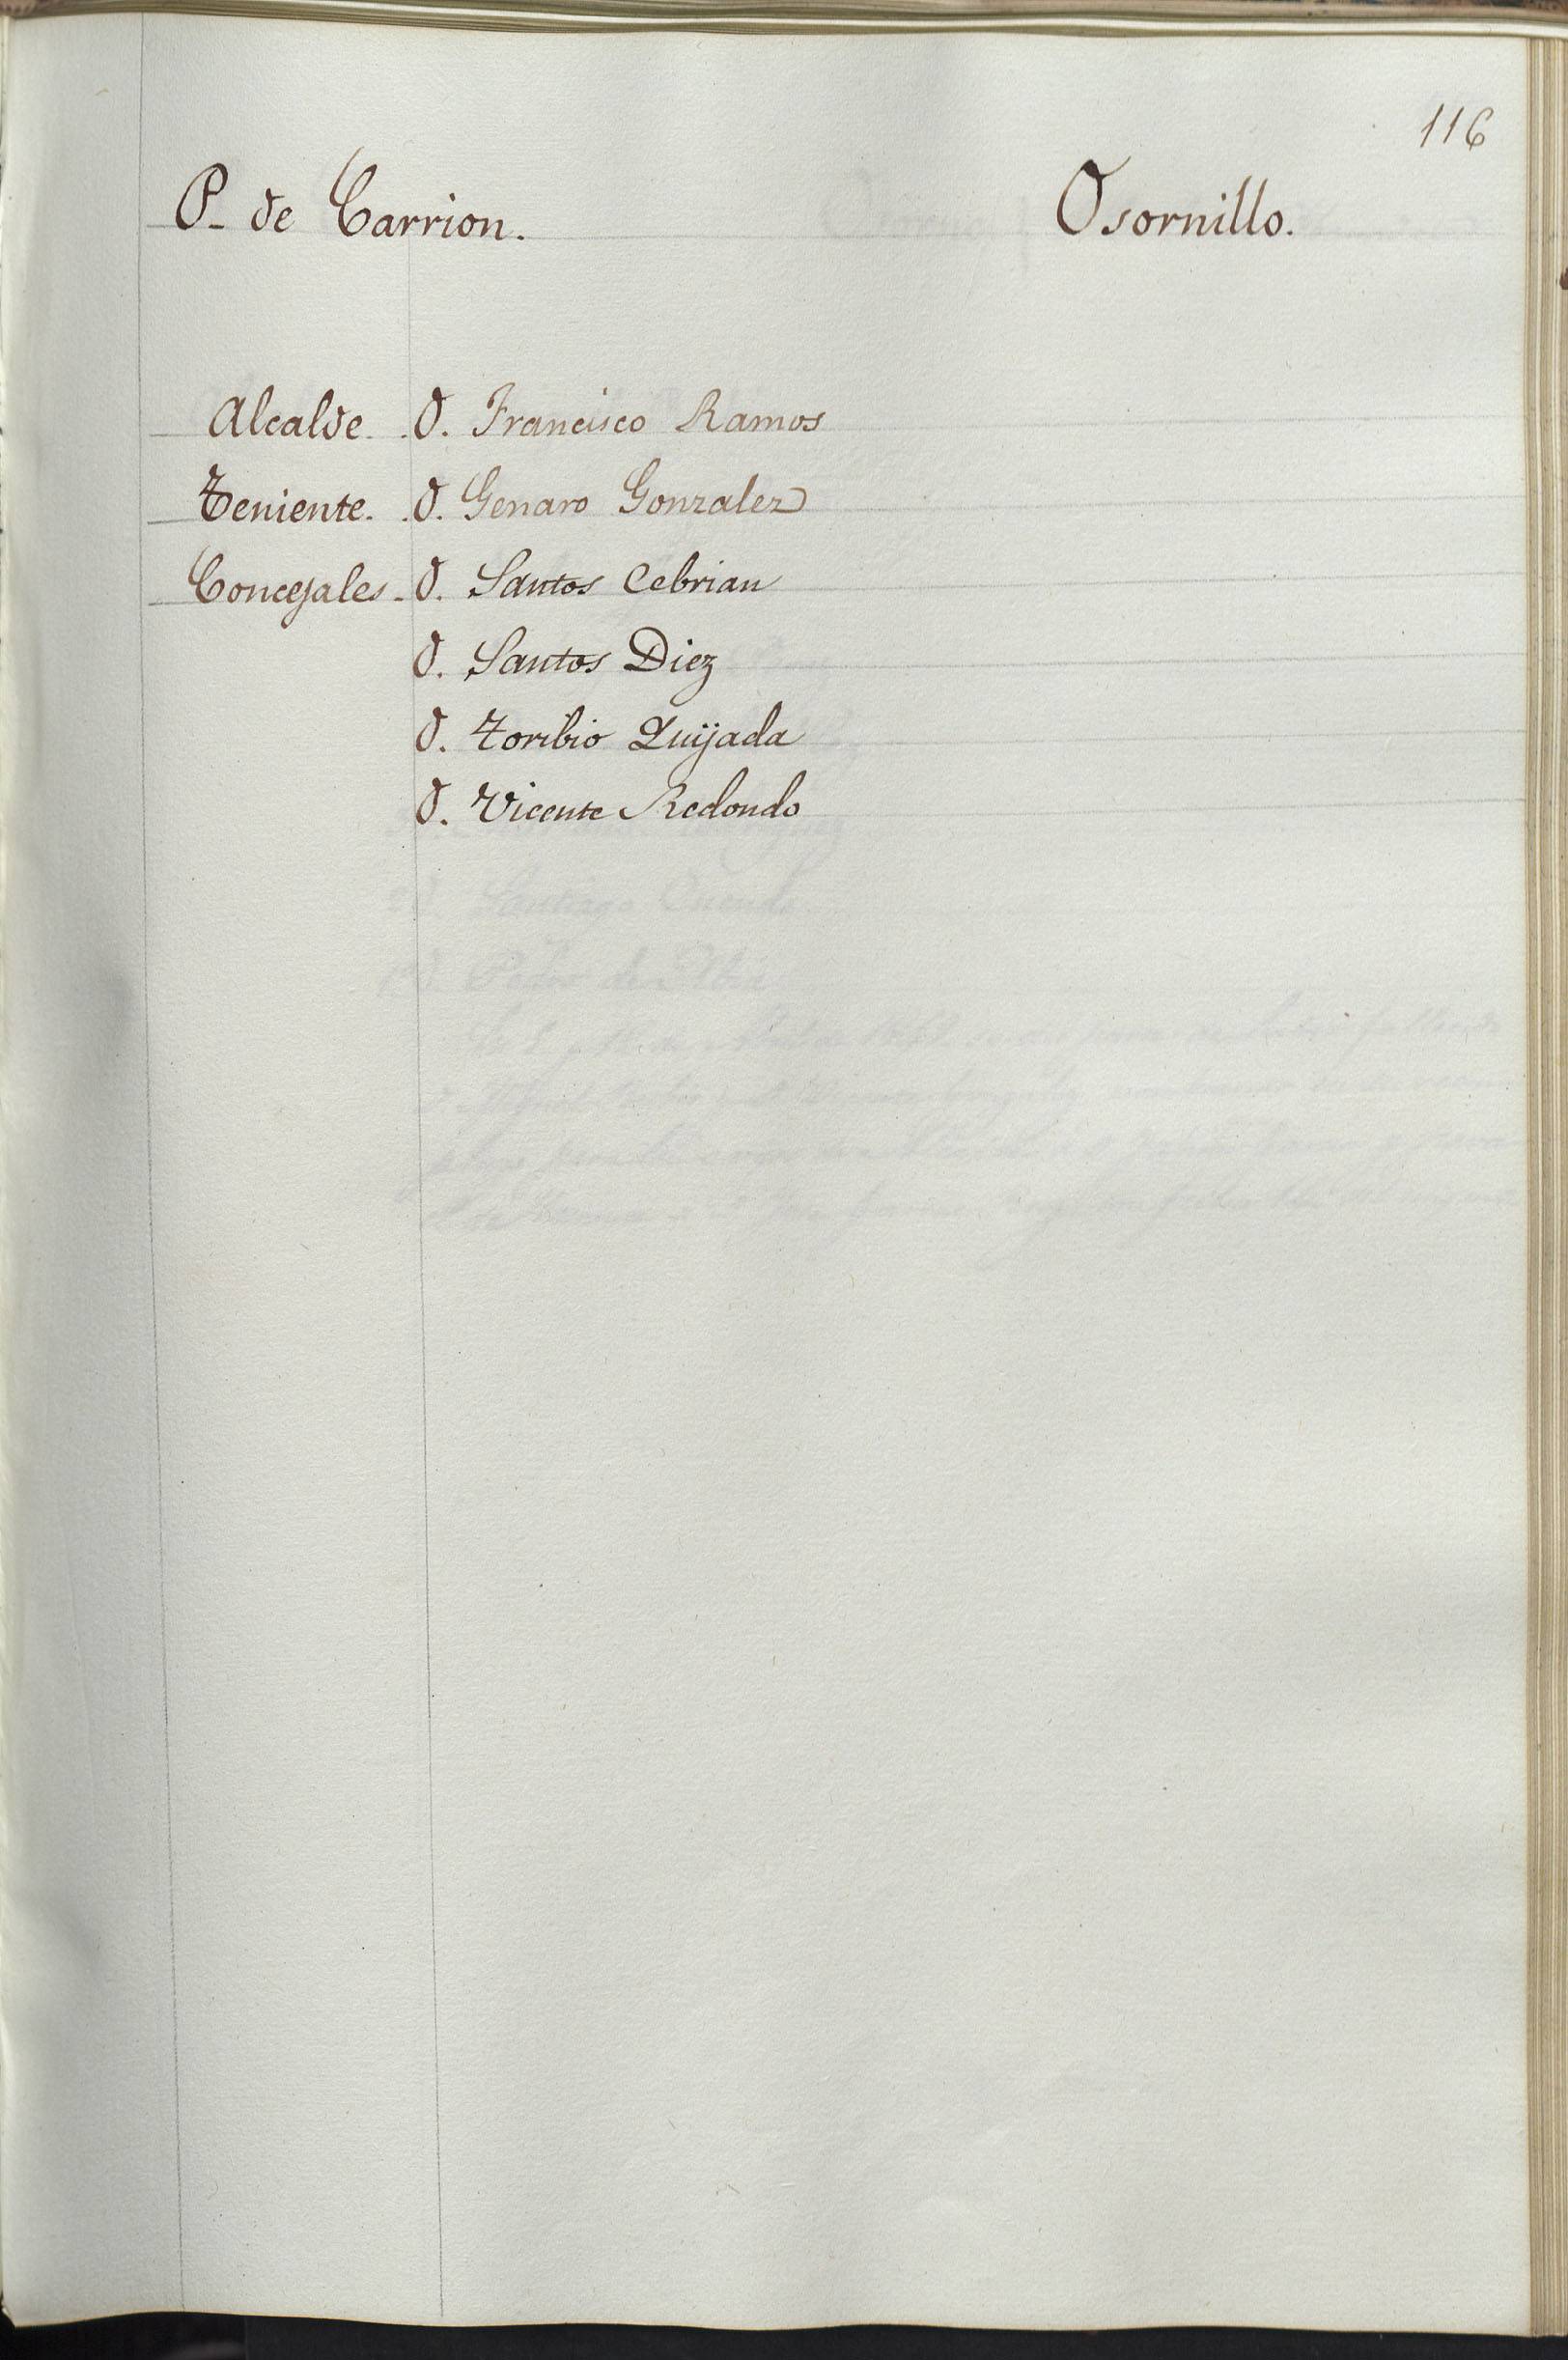 116
P. de Carrion. Osornillo.
Alcalde. D. Francisco Ramos
Teniente. D. Genaro Gonzalez
Concejales. D. Santos Cebrian
D. Santos Diez
D. Toribio Quijada
D. Vicente Redondo